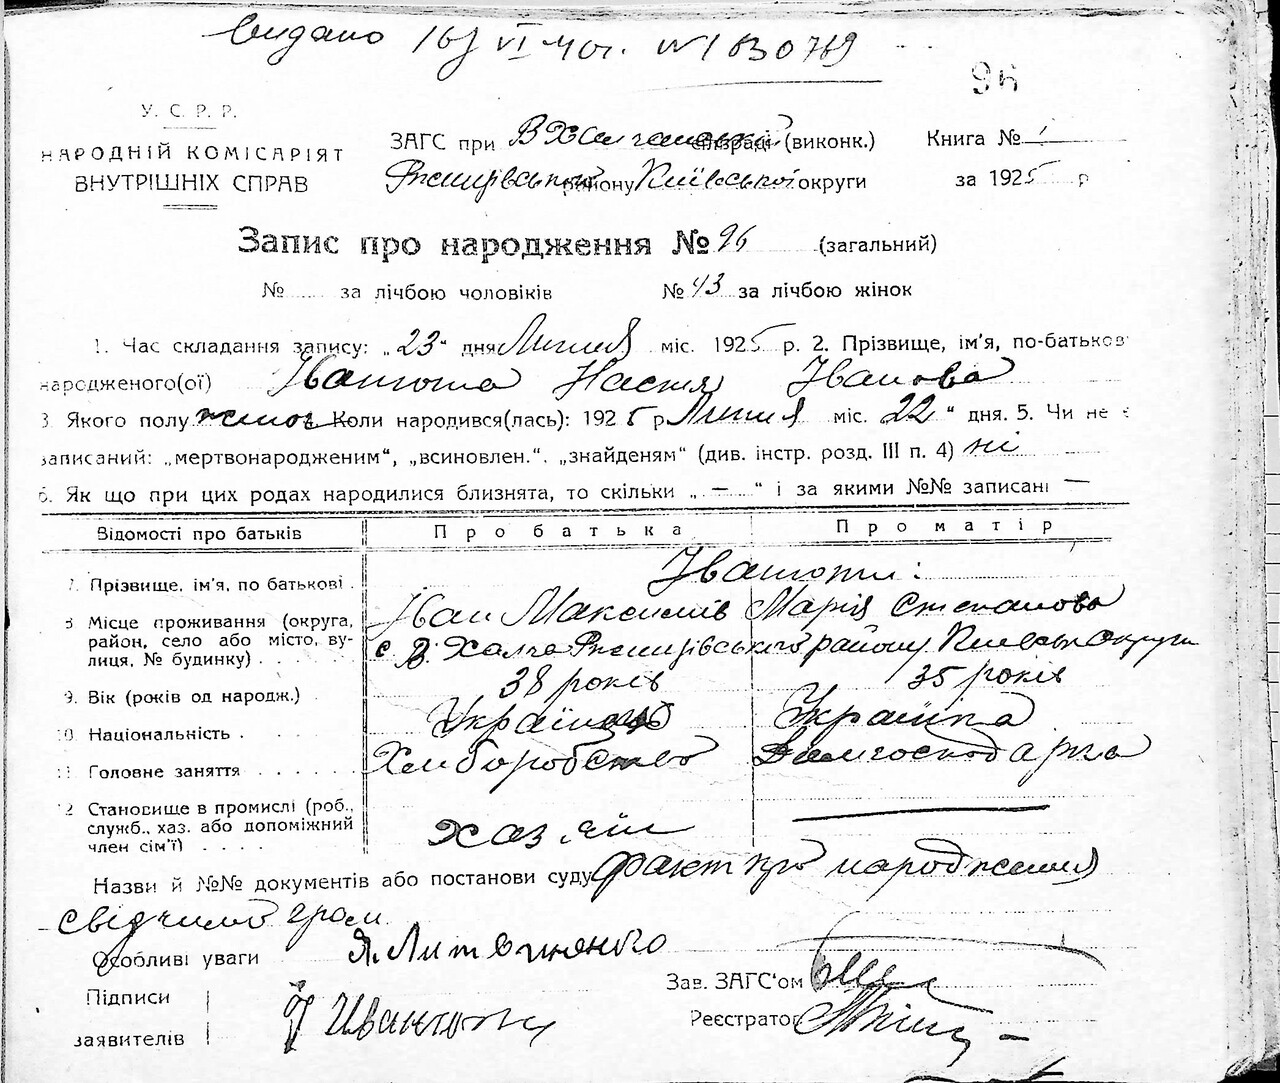 Видано 16/VI 40 г. №1 030769
96
У. С. Р. Р.
НАРОДНІЙ КОМІСАРІЯТ
ВНУТРІШНІХ СПРАВ
ЗАГС при В Халчанській сільраді (виконк.)
Ржищівського району Київської округи
Книга № 1
за 1925 р
Запис про народження № 96 (загальний)
№ за лічбою чоловіків № 43 за лічбою жінок
1. Час складання запису: „23“ дня Липня міс. 1925 р. 2. Прізвище, ім'я, по-батьков
народженого(ої) Івантота Настя Іванова
3. Якого полу жіноч Коли народився(лась): 1925 р Липня міс. 22“ дня. 5. Чи не є
записаний: „мертвонародженим“, „всиновлен.“, „знайденям“ (див. інстр. розд. III п. 4) ні
6. Як що при цих родах народилися близнята, то скільки „ — “ і за якими №№ записані —
Відомості про батьків Про батька Про матір
7. Прізвище, ім'я, по батькові Івантоти:
Іван Максимів Марія Степанова
8 Місце проживання (округа, район, село або місто, вулиця, № будинку) с В. Халча Ржищівського району Київськ округи
9. Вік (років од народж.) 38 років 35 років
10. Національність Українець Українка
11. Головне заняття Хліборобство Домгосподарка
12 Становище в промислі (роб., служб., хаз. або допоміжний член сім'ї) хазяїн
Назви й №№ документів або постанови суду факт про народження
свідчили гром
Особливі уваги Я. Литвиненко
Підписи
заявителів
Зав. ЗАГС'ом
Реєстратор